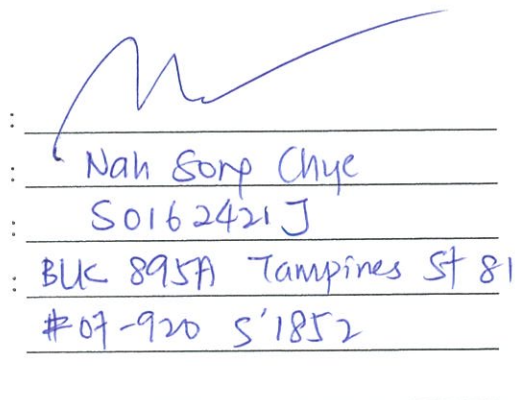 :
: Nah Song Chye
: S0162421J
: BLK 895A Tampines St 81
#07-920 S'1852